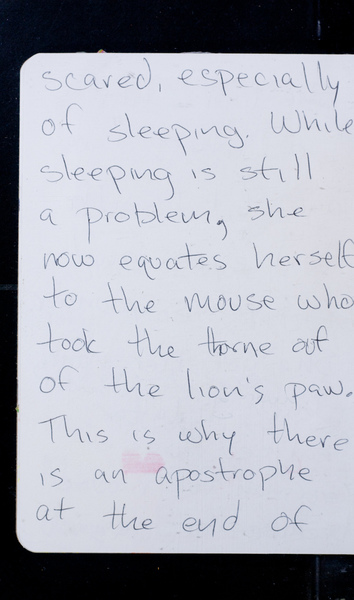 scared, especially
of sleeping. While
sleeping is still
a problem, she
now equates herself
to the mouse who
took the thorne out
of the lion's paw.
This is why there
is an apostrophe
at the end of